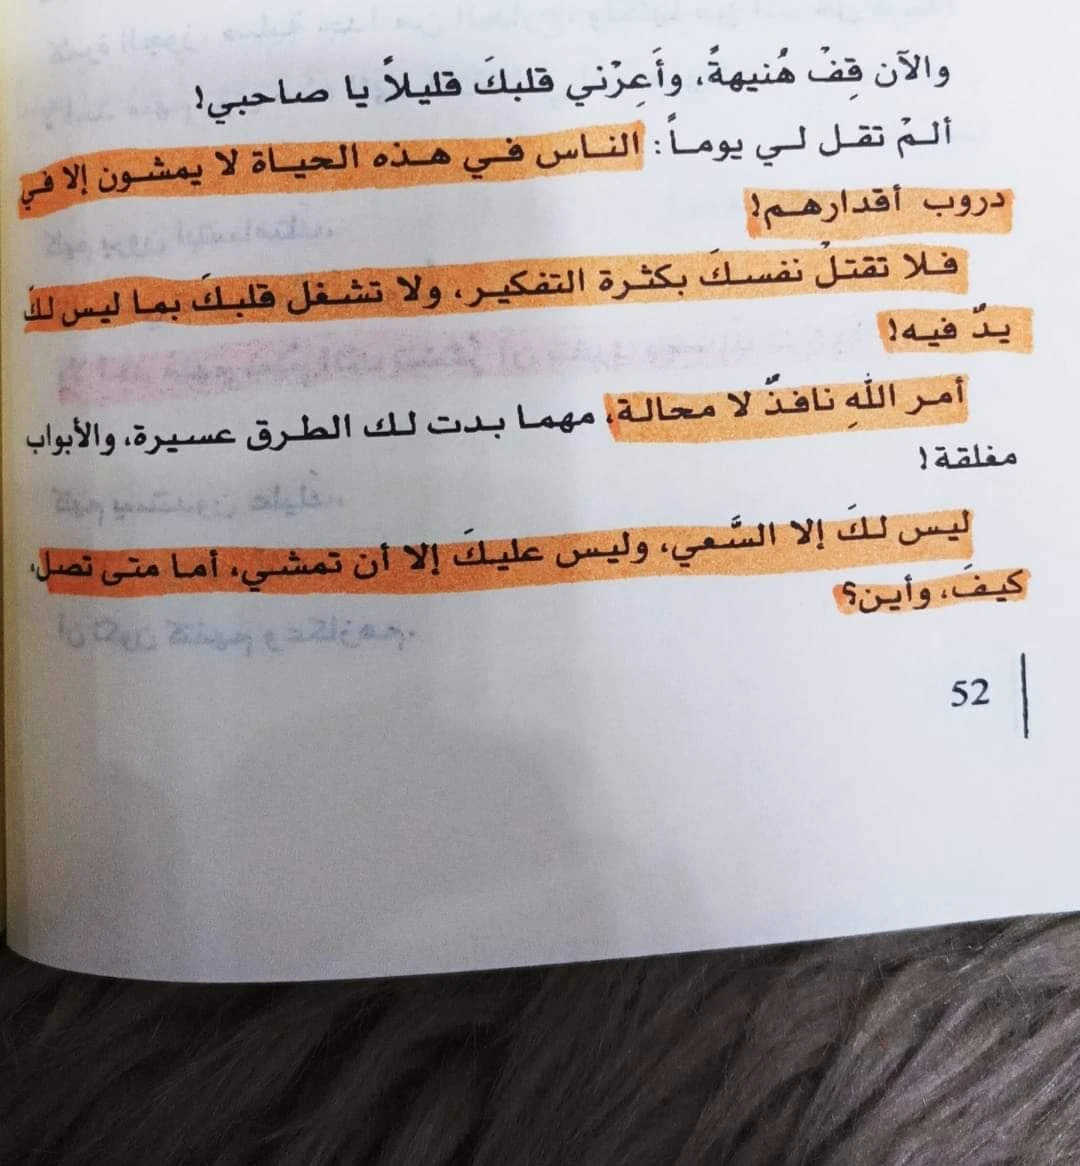 والآن قِفْ هُنيهةً، وأَعِرْني قلبكَ قليلاً يا صاحبي!
ألمْ تقل لي يوماً: الناس في هذه الحياة لا يمشون إلا في
دروب أقدارهم!
فلا تقتلْ نفسكَ بكثرة التفكير، ولا تشغل قلبكَ بما ليس لكَ
يدٌ فيه!
أمر اللهِ نافذٌ لا محالة، مهما بدت لك الطرق عسيرة، والأبواب
مغلقة!
ليس لكَ إلا السَّعي، وليس عليكَ إلا أن تمشي، أما متى تصل،
كيفَ، وأين؟
52